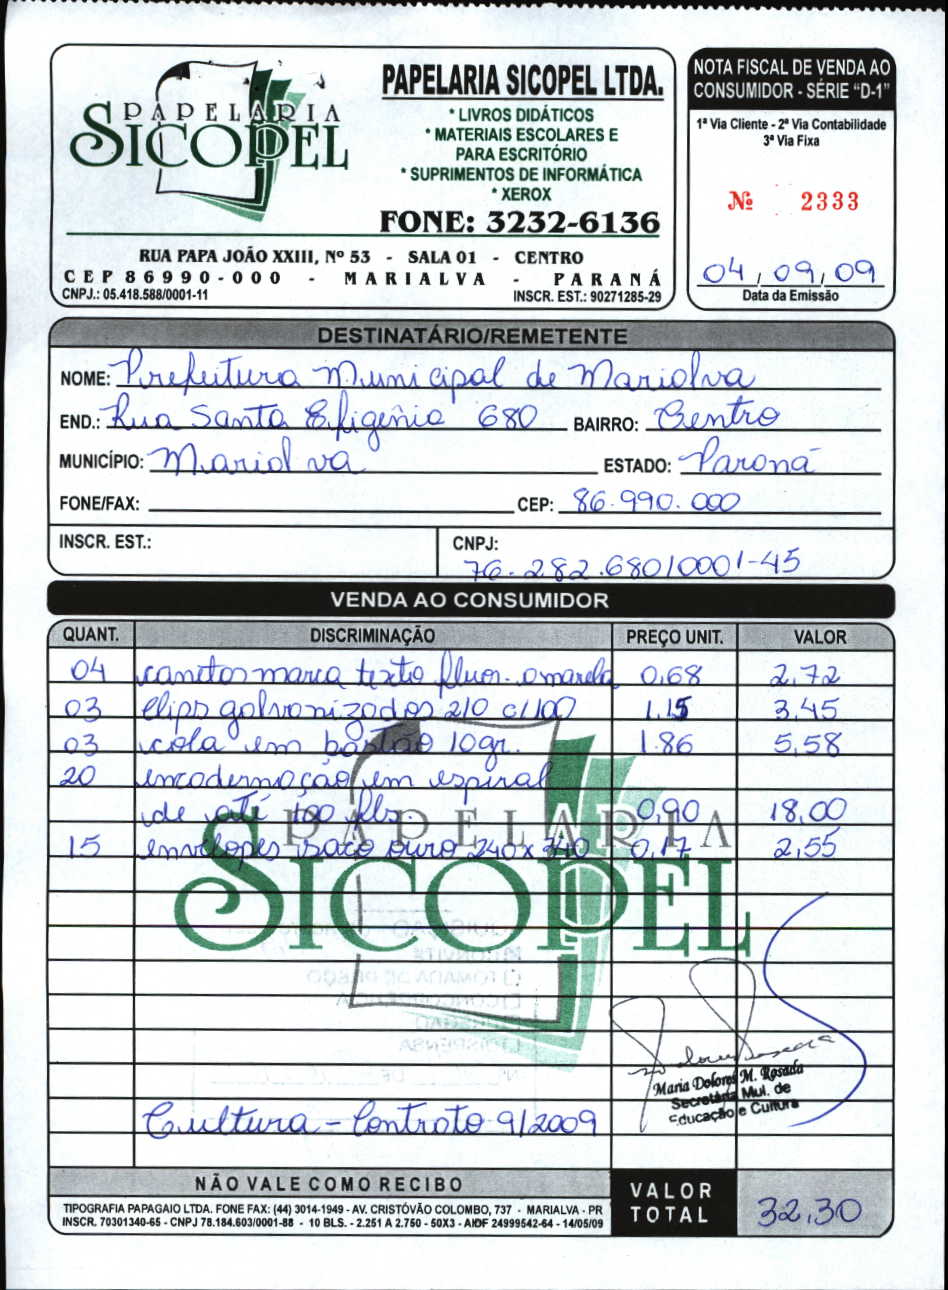 PAPELARIA
SICOPEL
PAPELARIA SICOPEL LTDA.
* LIVROS DIDÁTICOS
* MATERIAIS ESCOLARES E
PARA ESCRITÓRIO
* SUPRIMENTOS DE INFORMÁTICA
* XEROX
FONE: 3232-6136
RUA PAPA JOÃO XXIII, Nº 53 - SALA 01 - CENTRO
CEP 86990-000 - MARIALVA - PARANÁ
CNPJ.: 05.418.588/0001-11 INSCR. EST.: 90271285-29
NOTA FISCAL DE VENDA AO
CONSUMIDOR - SÉRIE "D-1"
1ª Via Cliente - 2ª Via Contabilidade
3ª Via Fixa
Nº 2333
04 / 09 / 09
Data da Emissão
DESTINATÁRIO/REMETENTE
NOME: Prefeitura Municipal de Marialva
END.: Rua Santa Efigênia 680 BAIRRO: Centro
MUNICÍPIO: Marialva ESTADO: Paraná
FONE/FAX: CEP: 86.990.000
INSCR. EST.: CNPJ:
76.282.680/0001-45
VENDA AO CONSUMIDOR
QUANT. DISCRIMINAÇÃO PREÇO UNIT. VALOR
04 canetas marca texto fluor. amarela 0,68 2,72
03 clips galvanizados 2/0 c/100 1.15 3,45
03 cola em bastão 10gr. 1.86 5,58
20 encadernação em espiral
de até 100 fls. 0,90 18,00
15 envelopes saco ouro 240x340 0,17 2,55
PAPELARIA
SICOPEL
CONVITE
TOMADA DE PREÇO
CONCORRÊNCIA
PREGÃO
DISPENSA
Nº DE
Maria Dolores M. Rosada
Secretária Mul. de
Educação e Cultura
Cultura - Contrato 9/2009
NÃO VALE COMO RECIBO
TIPOGRAFIA PAPAGAIO LTDA. FONE FAX: (44) 3014-1949 - AV. CRISTÓVÃO COLOMBO, 737 - MARIALVA - PR
INSCR. 70301340-65 - CNPJ 78.184.603/0001-88 - 10 BLS. - 2.251 A 2.750 - 50X3 - AIDF 24999542-64 - 14/05/09
VALOR
TOTAL
32,30